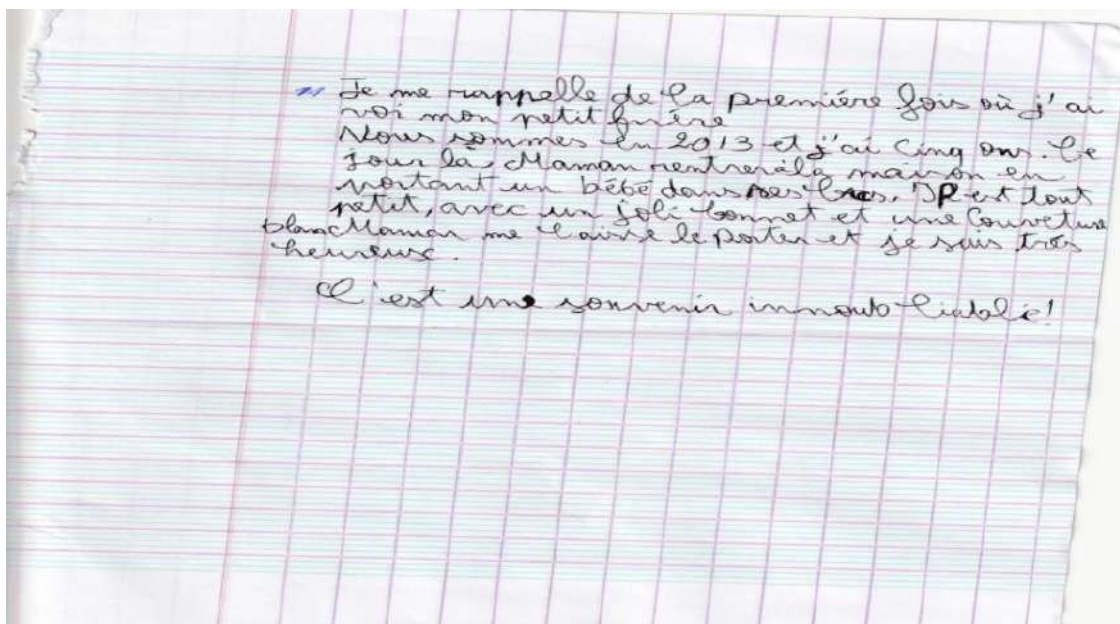 Je me rappelle de la première fois où j'ai
voi mon petit frère
Nous sommes en 2013 et j'ai Cinq ans. Ce
jour là, Maman rentre à la maison en
portant un bébé dans ses bras. Il est tout
petit, avec un joli bonnet et une Couveture
blanc Maman me laisse le porter et je suis très
heureux.
C'est une souvenir innoubliable!